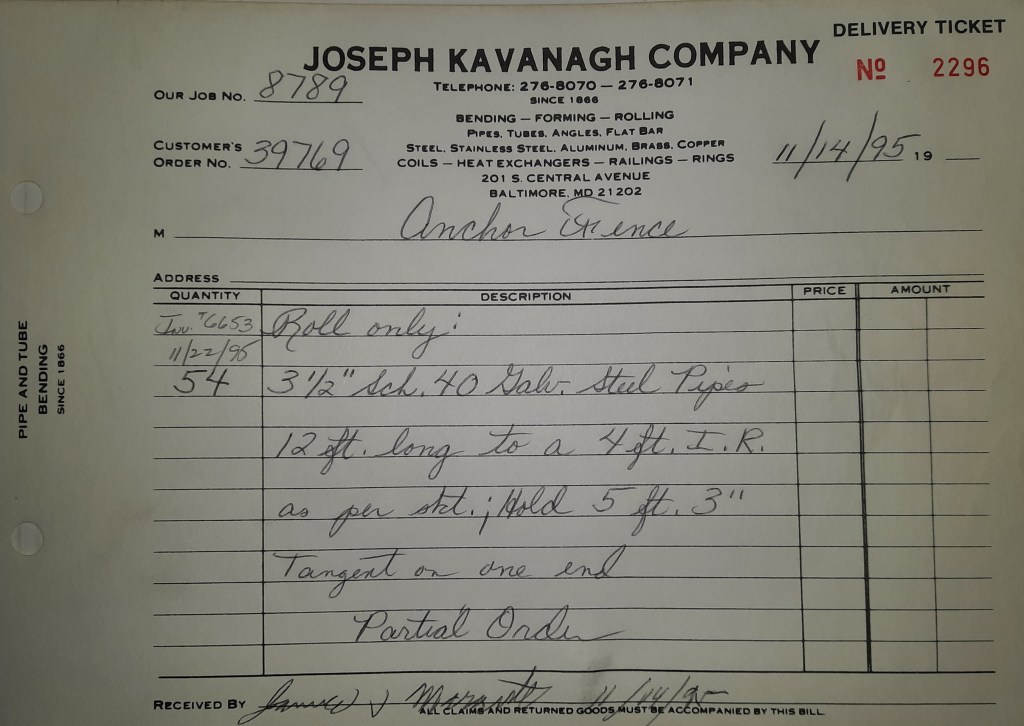 DELIVERY TICKET
JOSEPH KAVANAGH COMPANY
Nº 2296
OUR JOB NO. 8789
TELEPHONE: 276-8070 — 276-8071
SINCE 1866
BENDING — FORMING — ROLLING
PIPES, TUBES, ANGLES, FLAT BAR
CUSTOMER'S ORDER NO. 39769
STEEL, STAINLESS STEEL, ALUMINUM, BRASS, COPPER
COILS — HEAT EXCHANGERS — RAILINGS — RINGS
11/14/95 19
201 S. CENTRAL AVENUE
BALTIMORE, MD 21202
M Anchor Fence
ADDRESS
QUANTITY DESCRIPTION PRICE AMOUNT
Inv. #6653 Roll only:
11/22/95
54 3 1/2" Sch. 40 Galv. Steel Pipes
12 ft. long to a 4 ft. I.R.
as per skt.; Hold 5 ft. 3"
Tangent on one end
Partial Order
RECEIVED BY 11/14/95
ALL CLAIMS AND RETURNED GOODS MUST BE ACCOMPANIED BY THIS BILL
PIPE AND TUBE
BENDING
SINCE 1866